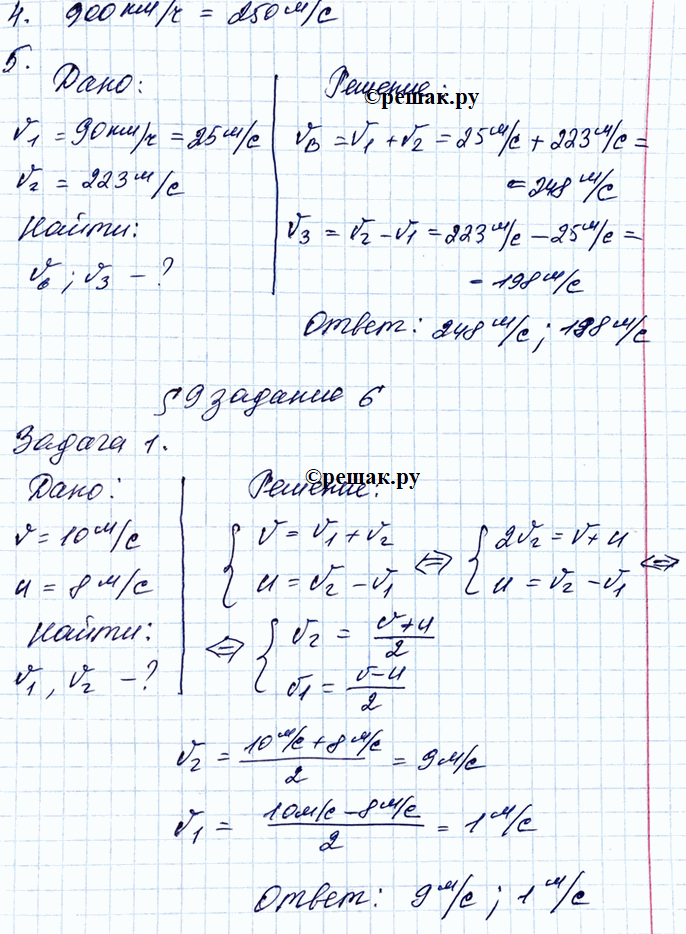 4. 900 км/ч = 250 м/с
5.
Дано:
v₁ = 90 км/ч = 25 м/с
v₂ = 223 м/с
Найти:
vв ; v₃ – ?
Решение:
©решак.ру
vв = v₁ + v₂ = 25 м/с + 223 м/с =
= 248 м/с
v₃ = v₂ – v₁ = 223 м/с – 25 м/с =
= 198 м/с
Ответ: 248 м/с ; 198 м/с
§ 9 задание 6
Задача 1.
Дано:
v = 10 м/с
u = 8 м/с
Найти:
v₁ , v₂ – ?
Решение:
©решак.ру
{ v = v₁ + v₂ ⇔ { 2v₂ = v + u ⇔
{ u = v₂ – v₁ { u = v₂ – v₁
⇔ { v₂ = (v + u)/2
{ v₁ = (v – u)/2
v₂ = (10 м/с + 8 м/с)/2 = 9 м/с
v₁ = (10 м/с – 8 м/с)/2 = 1 м/с
Ответ: 9 м/с ; 1 м/с